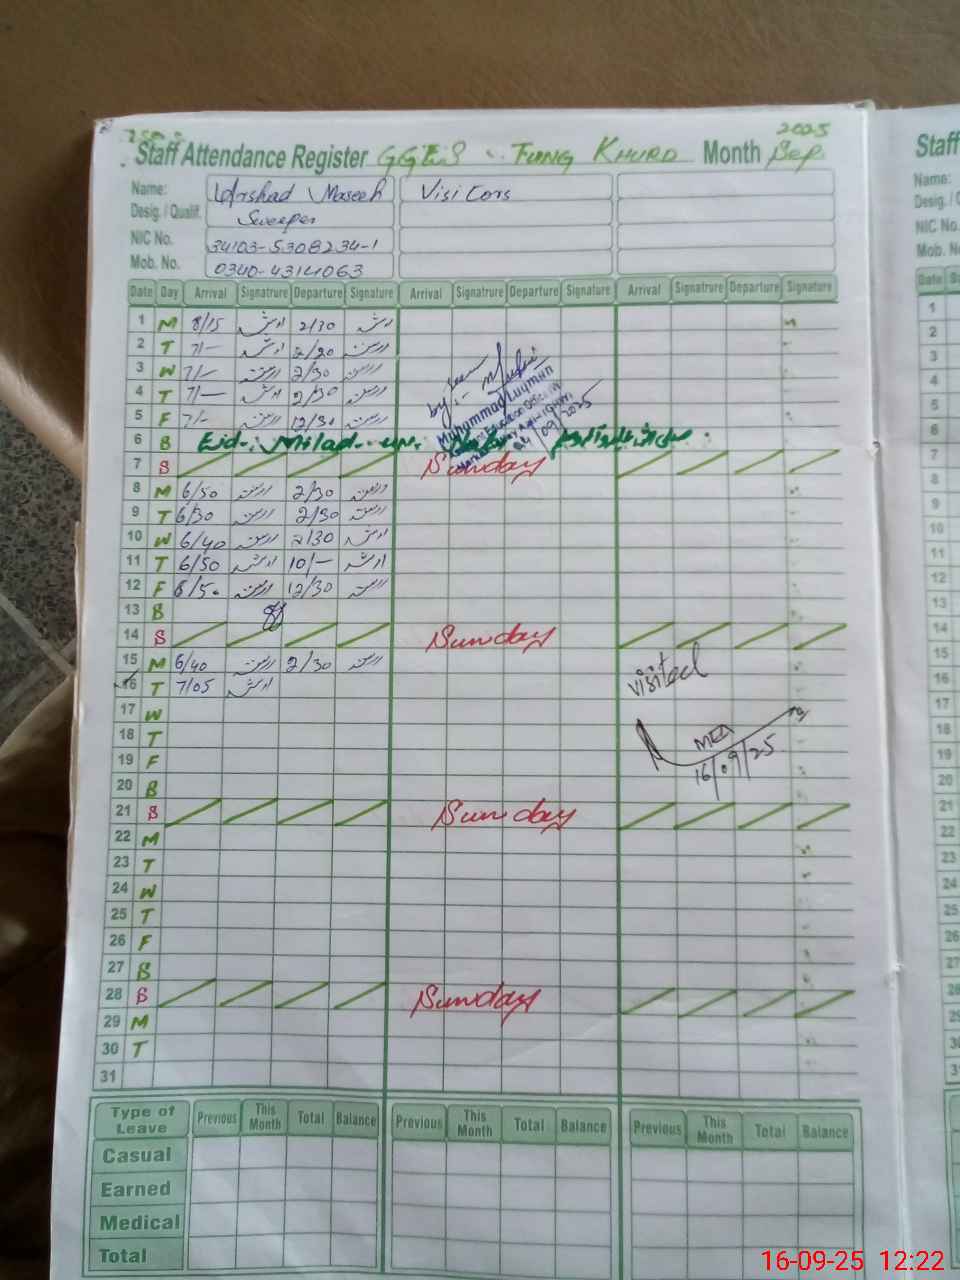 2025
Staff Attendance Register GGES Tung Khurd Month Sep. Staff
Name: Arshad Maseeh Visitors Name:
Desig. / Qualif. Sweeper Desig. /
NIC No. 34103-5308234-1 NIC No.
Mob. No. 0340-4314063 Mob. No
Date Day Arrival Signatrure Departure Signature Arrival Signatrure Departure Signature Arrival Signatrure Departure Signature Date
1 M 8/15 ارشد 2/30 ارشد 1
2 T 7/— ارشد 2/20 ارشد 2
3 W 7/— ارشد 2/30 ارشد 3
4 T 7/— ارشد 2/30 ارشد 4
5 F 7/- ارشد 12/30 ارشد 5
Seen
by:-
Muhammad Luqman
04/09/2025
6 S Eid. Milad. un. 6
7 S Sunday 7
8 M 6/50 ارشد 2/30 ارشد 8
9 T 6/30 ارشد 2/30 ارشد 9
10 W 6/40 ارشد 2/30 ارشد 10
11 T 6/50 ارشد 10/— ارشد 11
12 F 6/50 ارشد 12/30 ارشد 12
13 S 13
14 S Sunday 14
15 M 6/40 ارشد 2/30 ارشد 15
16 T 7/05 ارشد visited 16
17 W 17
18 T MEA 18
19 F 16/09/25 19
20 S 20
21 S Sunday 21
22 M 22
23 T 23
24 W 24
25 T 25
26 F 26
27 S 27
28 S Sunday 28
29 M 29
30 T 30
31 31
Type of Leave Previous This Month Total Balance Previous This Month Total Balance Previous This Month Total Balance
Casual
Earned
Medical
Total
16-09-25 12:22